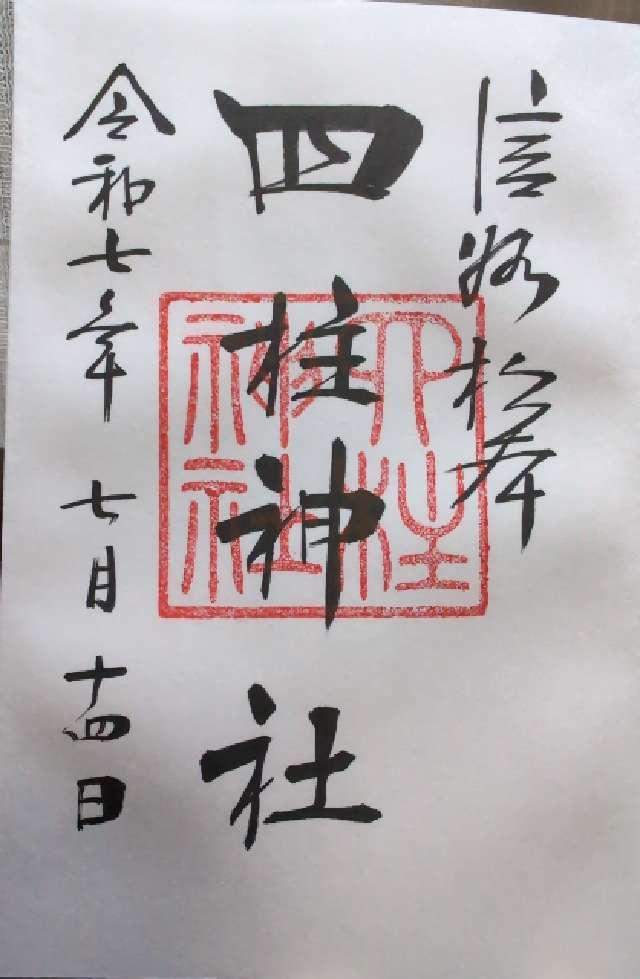 信州松本
四柱神社
四柱神社
令和七年 七月 十四日